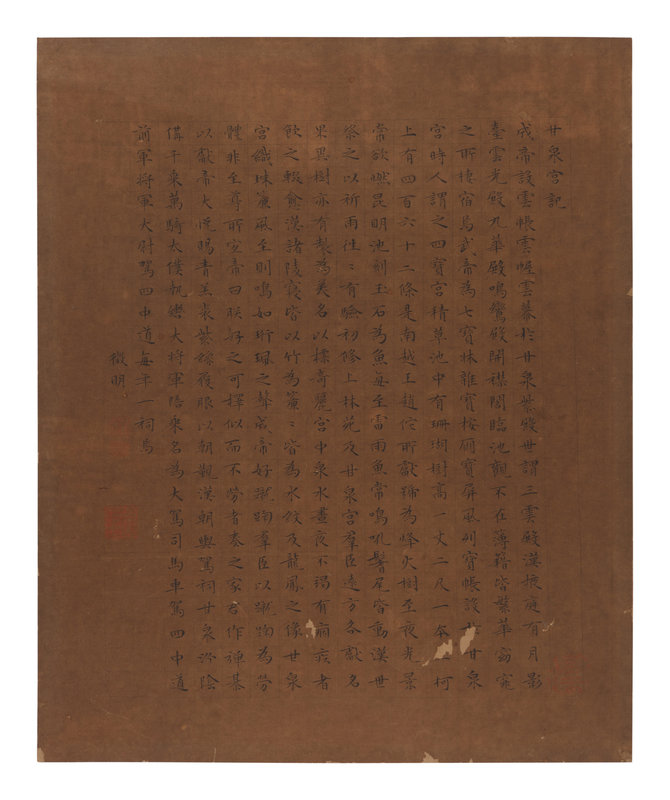 甘泉宮記
成帝設雲帳雲幄雲幕於甘泉紫殿世謂三雲殿漢掖庭有月影
臺雲光殿九華殿鳴鸞殿開襟閣臨池觀不在薄籍皆繁華窈窕
之所棲宿焉武帝為七寶牀雜寶桉廁寶屏風列寶帳設於甘泉
宮時人謂之四寶宮積草池中有珊瑚樹高一丈二尺一本柯
上有四百六十二條是南越王趙佗所獻號為烽火樹至夜光景
常欲燃昆明池刻玉石為魚每至雷雨魚常鳴吼鬐尾皆動漢世
祭之以祈雨往〻有驗初修上林苑及甘泉宮羣臣遠方各獻名
果異樹亦有製為美名以標奇麗宮中泉水晝夜不竭有痼疾者
飲之輒愈漢諸陵寢皆以竹為簾〻皆為水紋及龍鳳之像甘泉
宮織珠簾風至則鳴如珩珮之聲成帝好蹴踘羣臣以蹴踘為勞
體非至尊所宜帝曰朕好之可擇似而不勞者奏之家君作彈棊
以獻帝大悅賜青羔裘紫絲履服以朝覲漢朝輿駕祠甘泉汾陰
備千乘萬騎太僕執轡大將軍陪乘名為大駕司馬車駕四中道
前軍將軍大尉駕四中道每年一祠焉
徵明